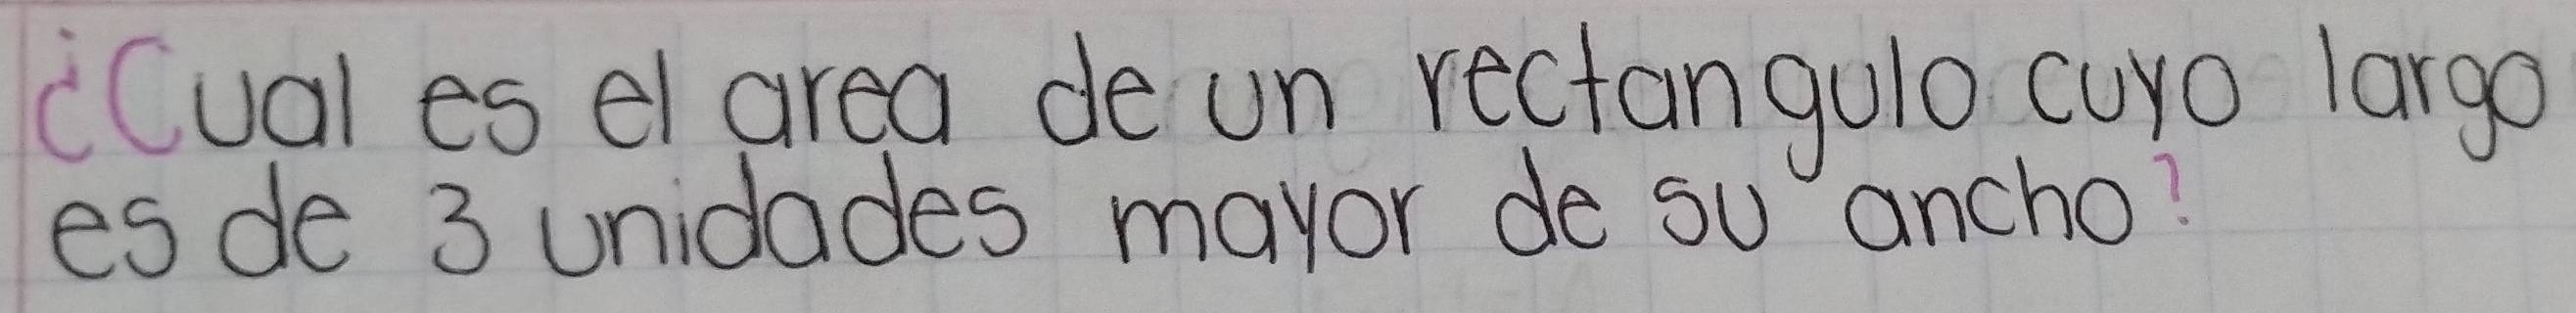 ¿Cual es el area de un rectangulo cuyo largo
es de 3 unidades mayor de su ancho?